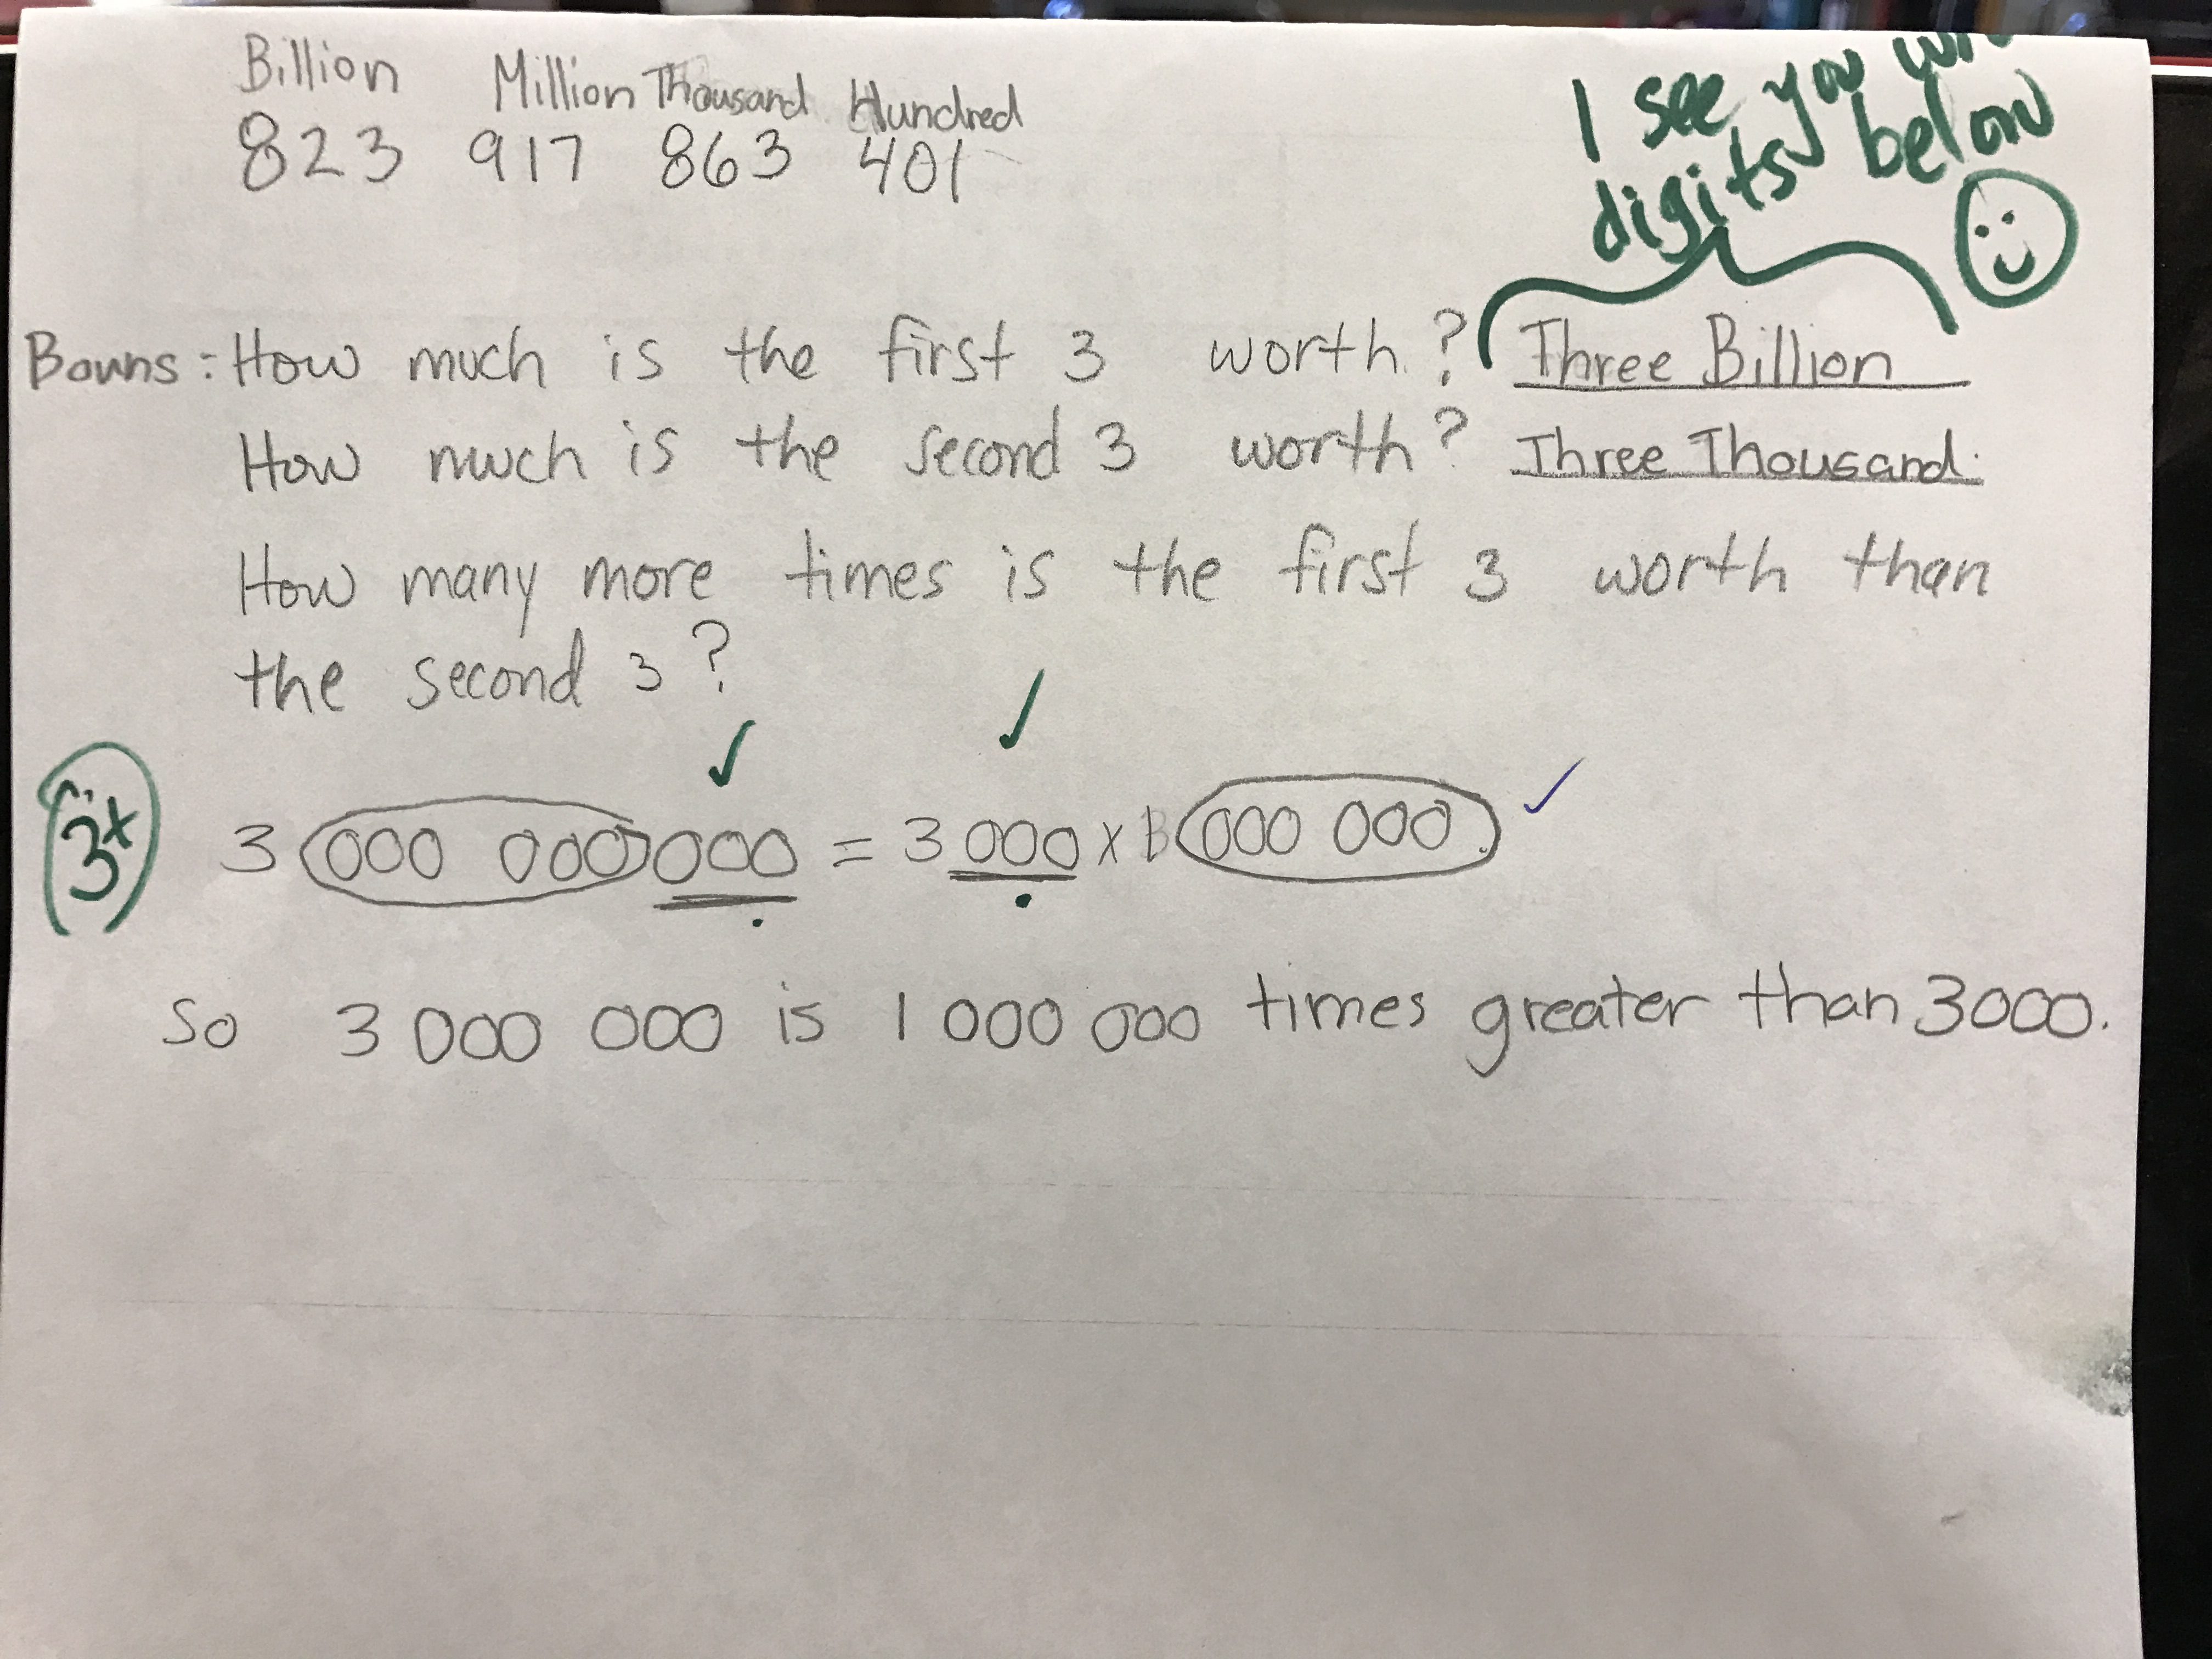 Billion Million Thousand Hundred
823 917 863 401
I see you
digits below
Bouns: How much is the first 3 worth? Three Billion
How much is the second 3 worth? Three Thousand.
How many more times is the first 3 worth than
the second 3?
3 000 000 000 = 3 000 x 1 000 000.
So 3 000 000 is 1 000 000 times greater than 3000.